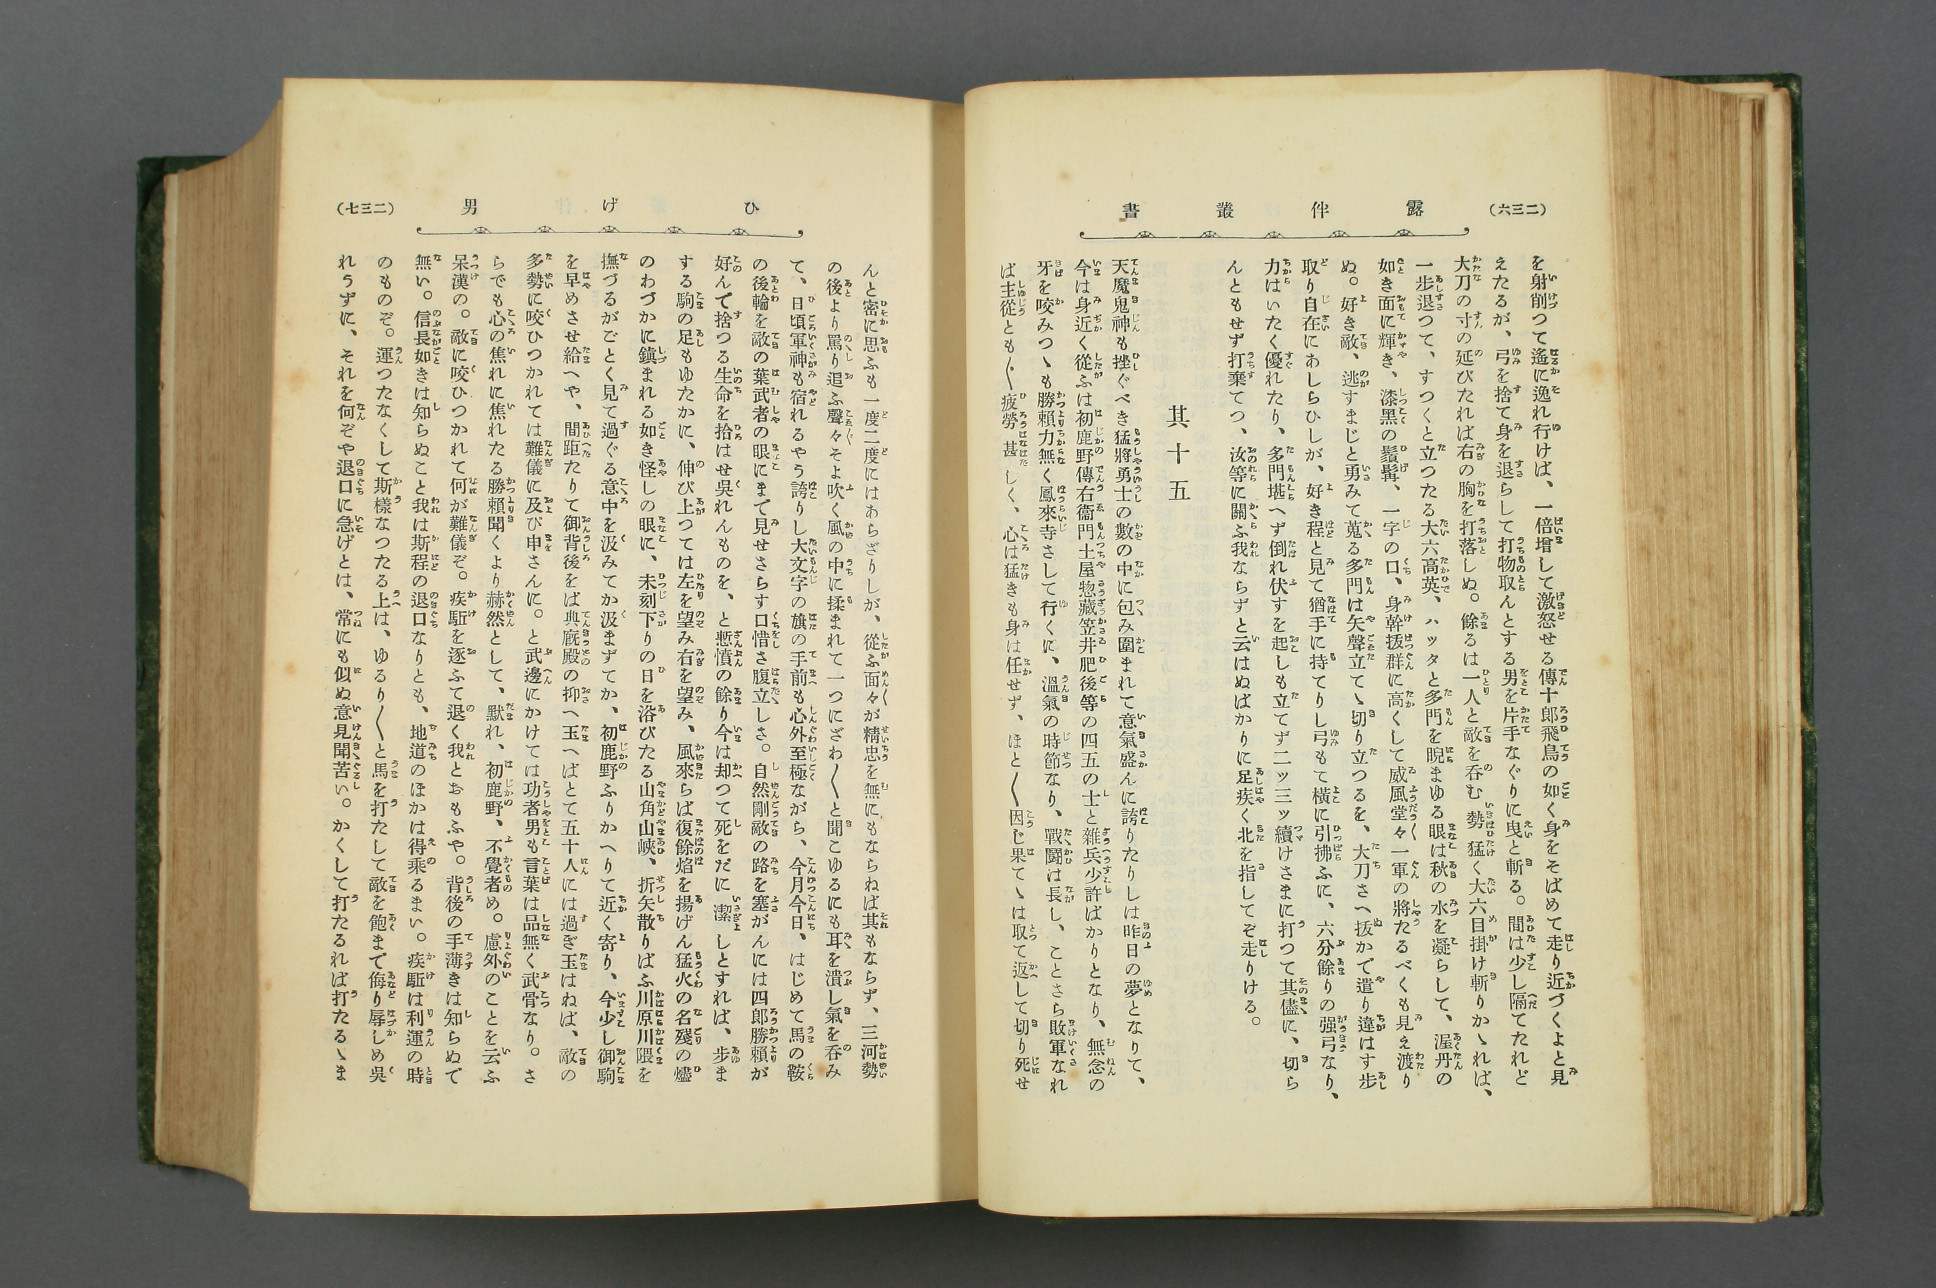 （二三六）
露伴叢書
を射削つて遙に逸れ行けば、一倍増して激怒せる傳十郎飛鳥の如く身をそばめて走り近づくよと見
えたるが、弓を捨て身を退らして打物取んとする男を片手なぐりに曳と斬る。間は少し隔てたれど
大刀の寸の延びたれば右の胸を打落しぬ。餘るは一人と敵を呑む勢猛く大六目掛け斬りかゝれば、
一歩退つて、すつくと立つたる大六高英、ハッタと多門を睨まゆる眼は秋の水を凝らして、渥丹の
如き面に輝き、漆黑の鬚髯、一字の口、身幹抜群に高くして威風堂々一軍の將たるべくも見え渡り
ぬ。好き敵、逃すまじと勇みて蒐る多門は矢聲立てゝ切り立つるを、大刀さへ抜かで遣り違はす歩
取り自在にあしらひしが、好き程と見て猶手に持てりし弓もて橫に引拂ふに、六分餘りの强弓なり、
力はいたく優れたり、多門堪へず倒れ伏すを起しも立てず二ッ三ッ續けさまに打つて其儘に、切ら
んともせず打棄てつ、汝等に關ふ我ならずと云はぬばかりに足疾く北を指してぞ走りける。
其十五
天魔鬼神も挫ぐべき猛將勇士の數の中に包み圍まれて意氣盛んに誇りたりしは昨日の夢となりて、
今は身近く從ふは初鹿野傳右衞門土屋惣藏笠井肥後等の四五の士と雜兵少許ばかりとなり、無念の
牙を咬みつゝも勝賴力無く鳳來寺さして行くに、溫氣の時節なり、戰鬪は長し、ことさら敗軍なれ
ば主從とも〱疲勞甚しく、心は猛きも身は任せず、ほと〱因じ果てゝは取て返して切り死せ
（二三七）
ひげ男
んと密に思ふも一度二度にはあらざりしが、從ふ面々が精忠を無にもならねば其もならず、三河勢
の後より罵り追ふ聲々そよ吹く風の中に揉まれて一つにざわ〱と聞こゆるにも耳を潰し氣を呑み
て、日頃軍神も宿れるやう誇りし大文字の旗の手前も心外至極ながら、今月今日、はじめて馬の鞍
の後輪を敵の葉武者の眼にまで見せさらす口惜さ腹立しさ。自然剛敵の路を塞がんには四郎勝賴が
好んで捨つる生命を拾はせ吳れんものを、と慙憤の餘り今は却つて死をだに潔しとすれば、歩ま
する駒の足もゆたかに、伸び上つては左を望み右を望み、風來らば復餘焰を揚げん猛火の名殘の燼
のわづかに鎭まれる如き怪しの眼に、未刻下りの日を浴びたる山角山峽、折矢散りばふ川原川隈を
撫づるがごとく見て過ぐる意中を汲みてか汲まずてか、初鹿野ふりかへりて近く寄り、今少し御駒
を早めさせ給へや、間距たりて御背後をば典廐殿の抑へ玉へばとて五十人には過ぎ玉はねば、敵の
多勢に咬ひつかれては難儀に及び申さんに。と武邊にかけては功者男も言葉は品無く武骨なり。さ
らでも心の焦れに焦れたる勝賴聞くより赫然として、默れ、初鹿野、不覺者め。慮外のことを云ふ
呆漢の。敵に咬ひつかれて何が難儀ぞ。疾駈を逐ふて退く我とおもふや。背後の手薄きは知らぬで
無い。信長如きは知らぬこと我は斯程の退口なりとも、地道のほかは得乘るまい。疾駈は利運の時
のものぞ。運つたなくして斯樣なつたる上は、ゆるり〱と馬を打たして敵を飽まで侮り辱しめ吳
れうずに、それを何ぞや退口に急げとは、常にも似ぬ意見聞苦い。かくして打たるれば打たるゝま